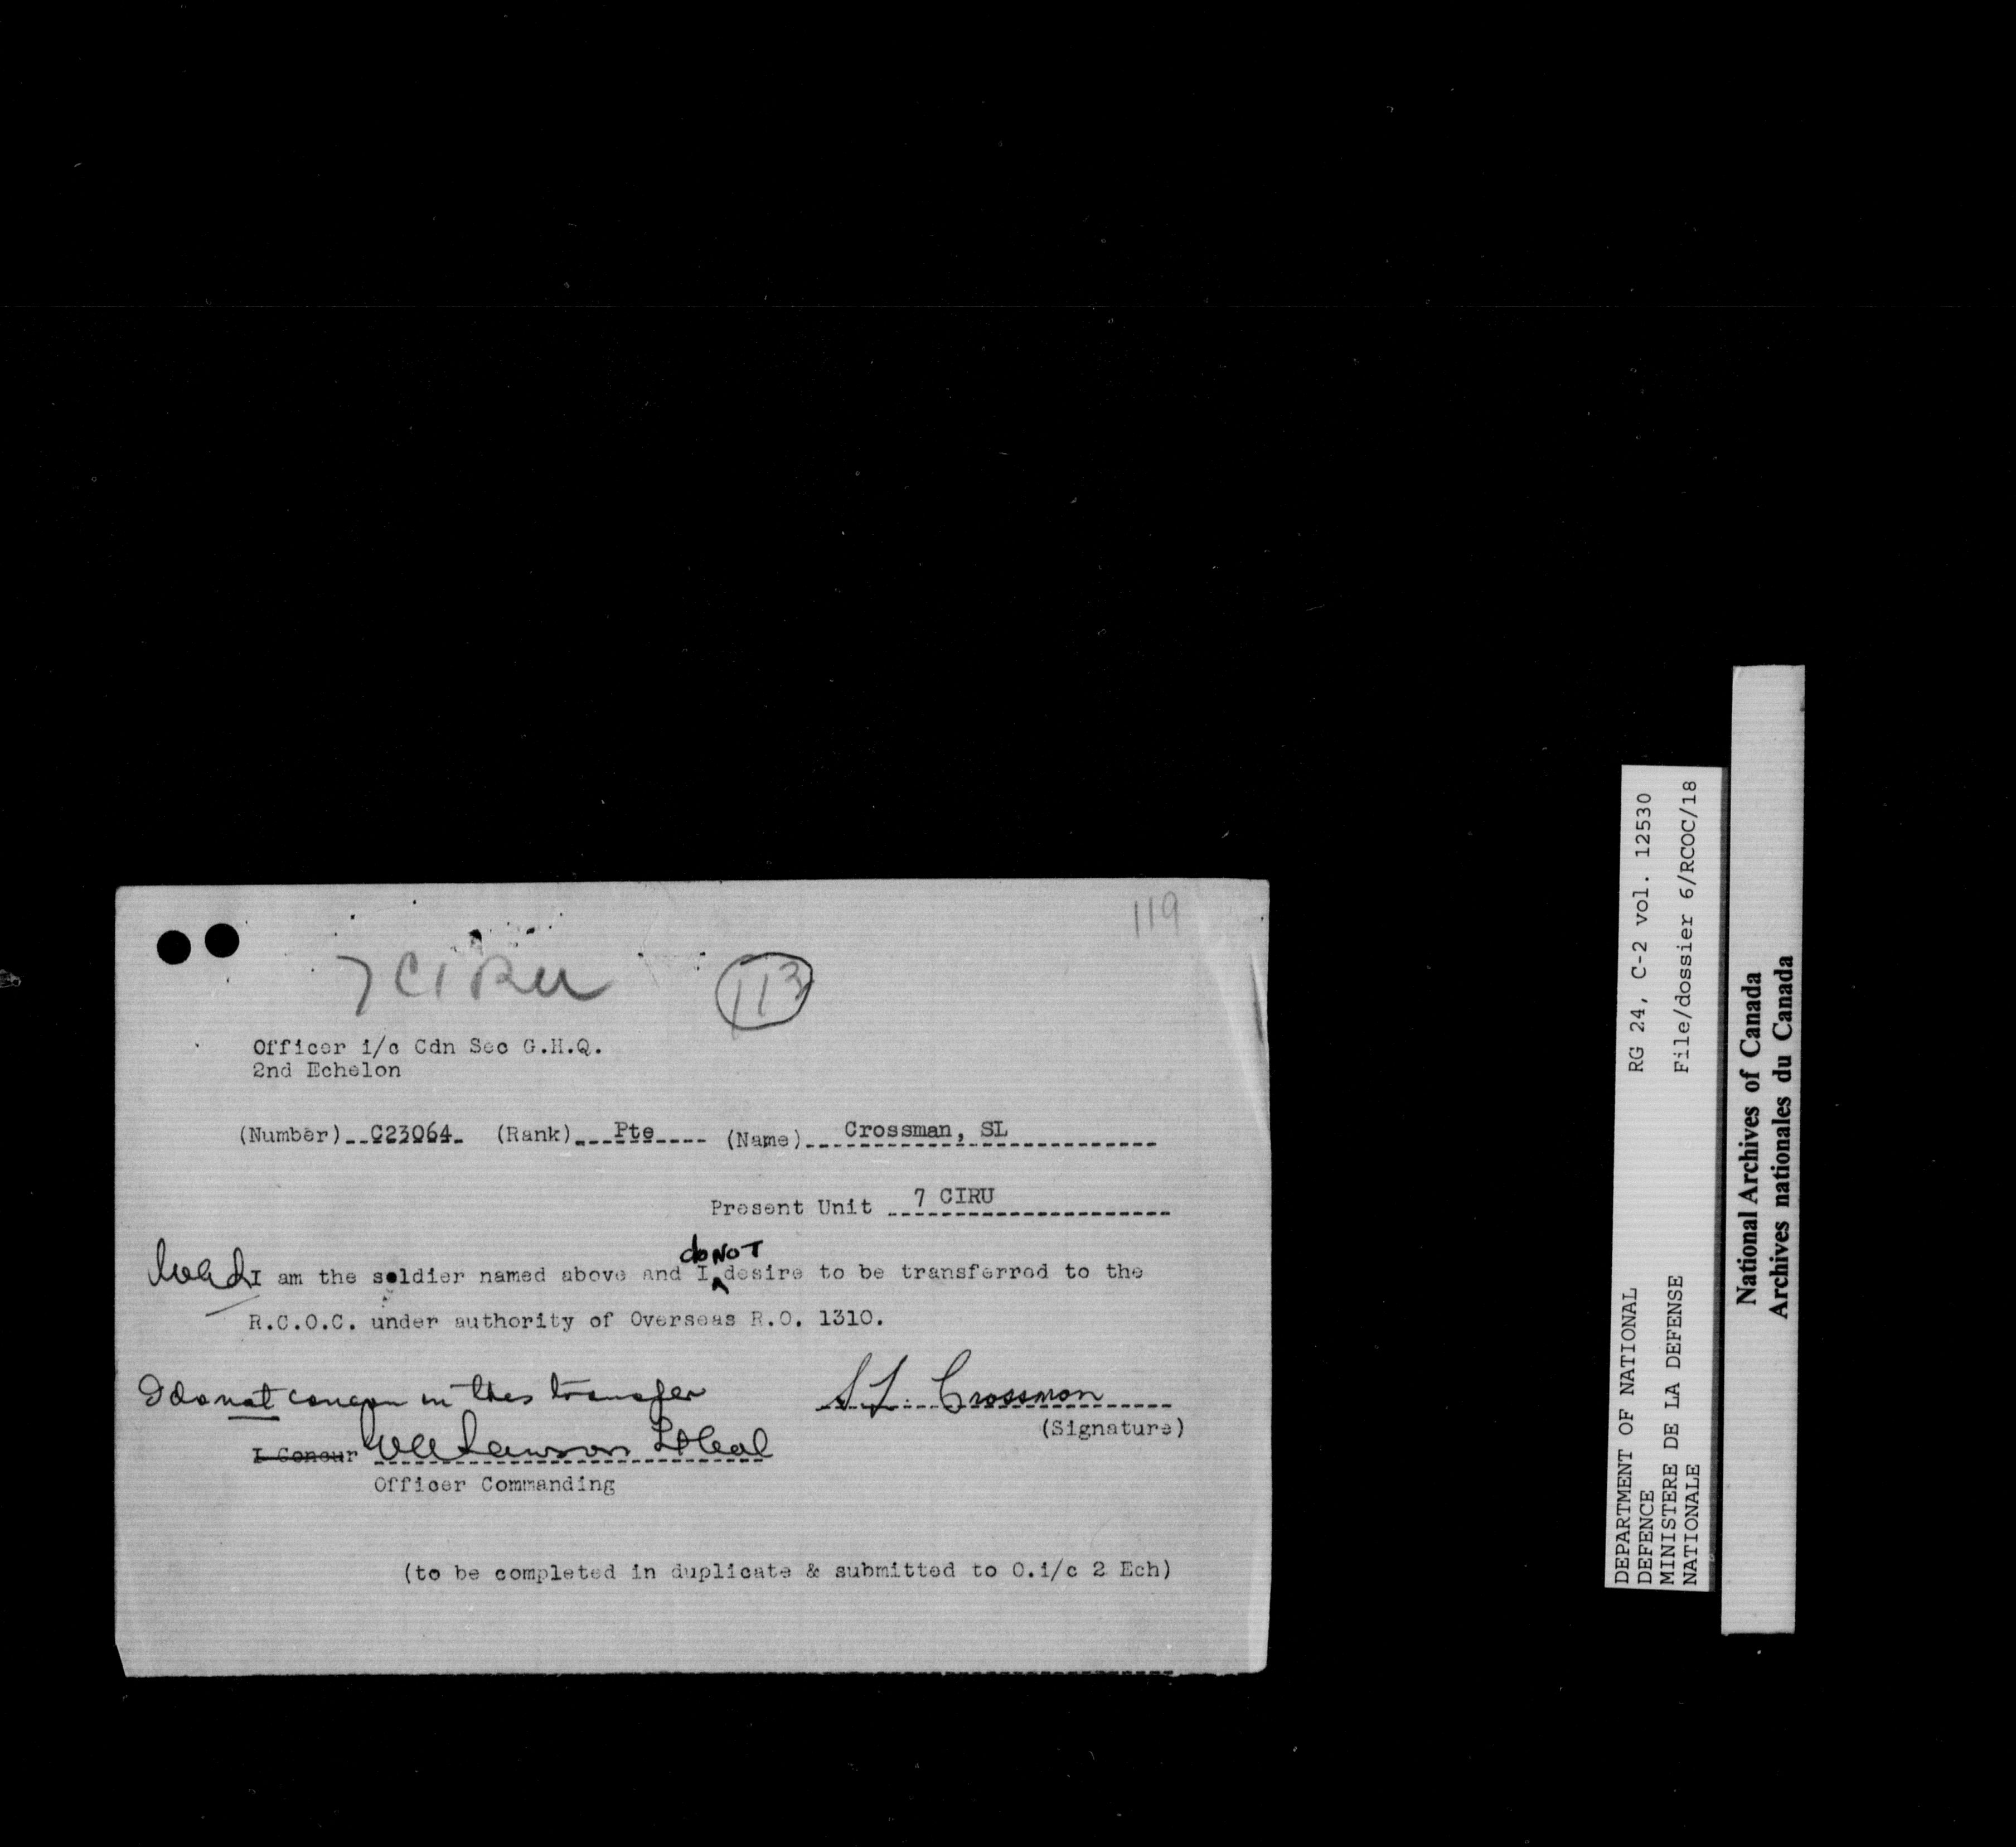 119
7 CIRU
113
Officer i/c Cdn Sec G.H.Q.
2nd Echelon
(Number) C23064 (Rank) Pte (Name) Crossman, SL
Present Unit 7 CIRU
do NOT
I am the soldier named above and I desire to be transferred to the
R.C.O.C. under authority of Overseas R.O. 1310.
I do not concur in this transfer
S L. Crossman
(Signature)
I Concur Lawson Lt Col
Officer Commanding
(to be completed in duplicate & submitted to O.i/c 2 Ech)
DEPARTMENT OF NATIONAL
DEFENCE
MINISTERE DE LA DEFENSE
NATIONALE
RG 24, C-2 vol. 12530
File/dossier 6/RCOC/18
National Archives of Canada
Archives nationales du Canada